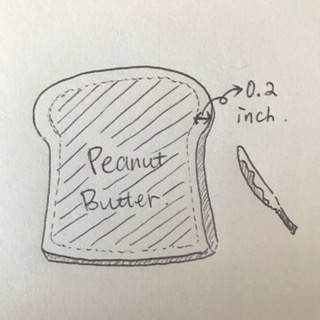 0.2
inch.
Peanut
Butter.